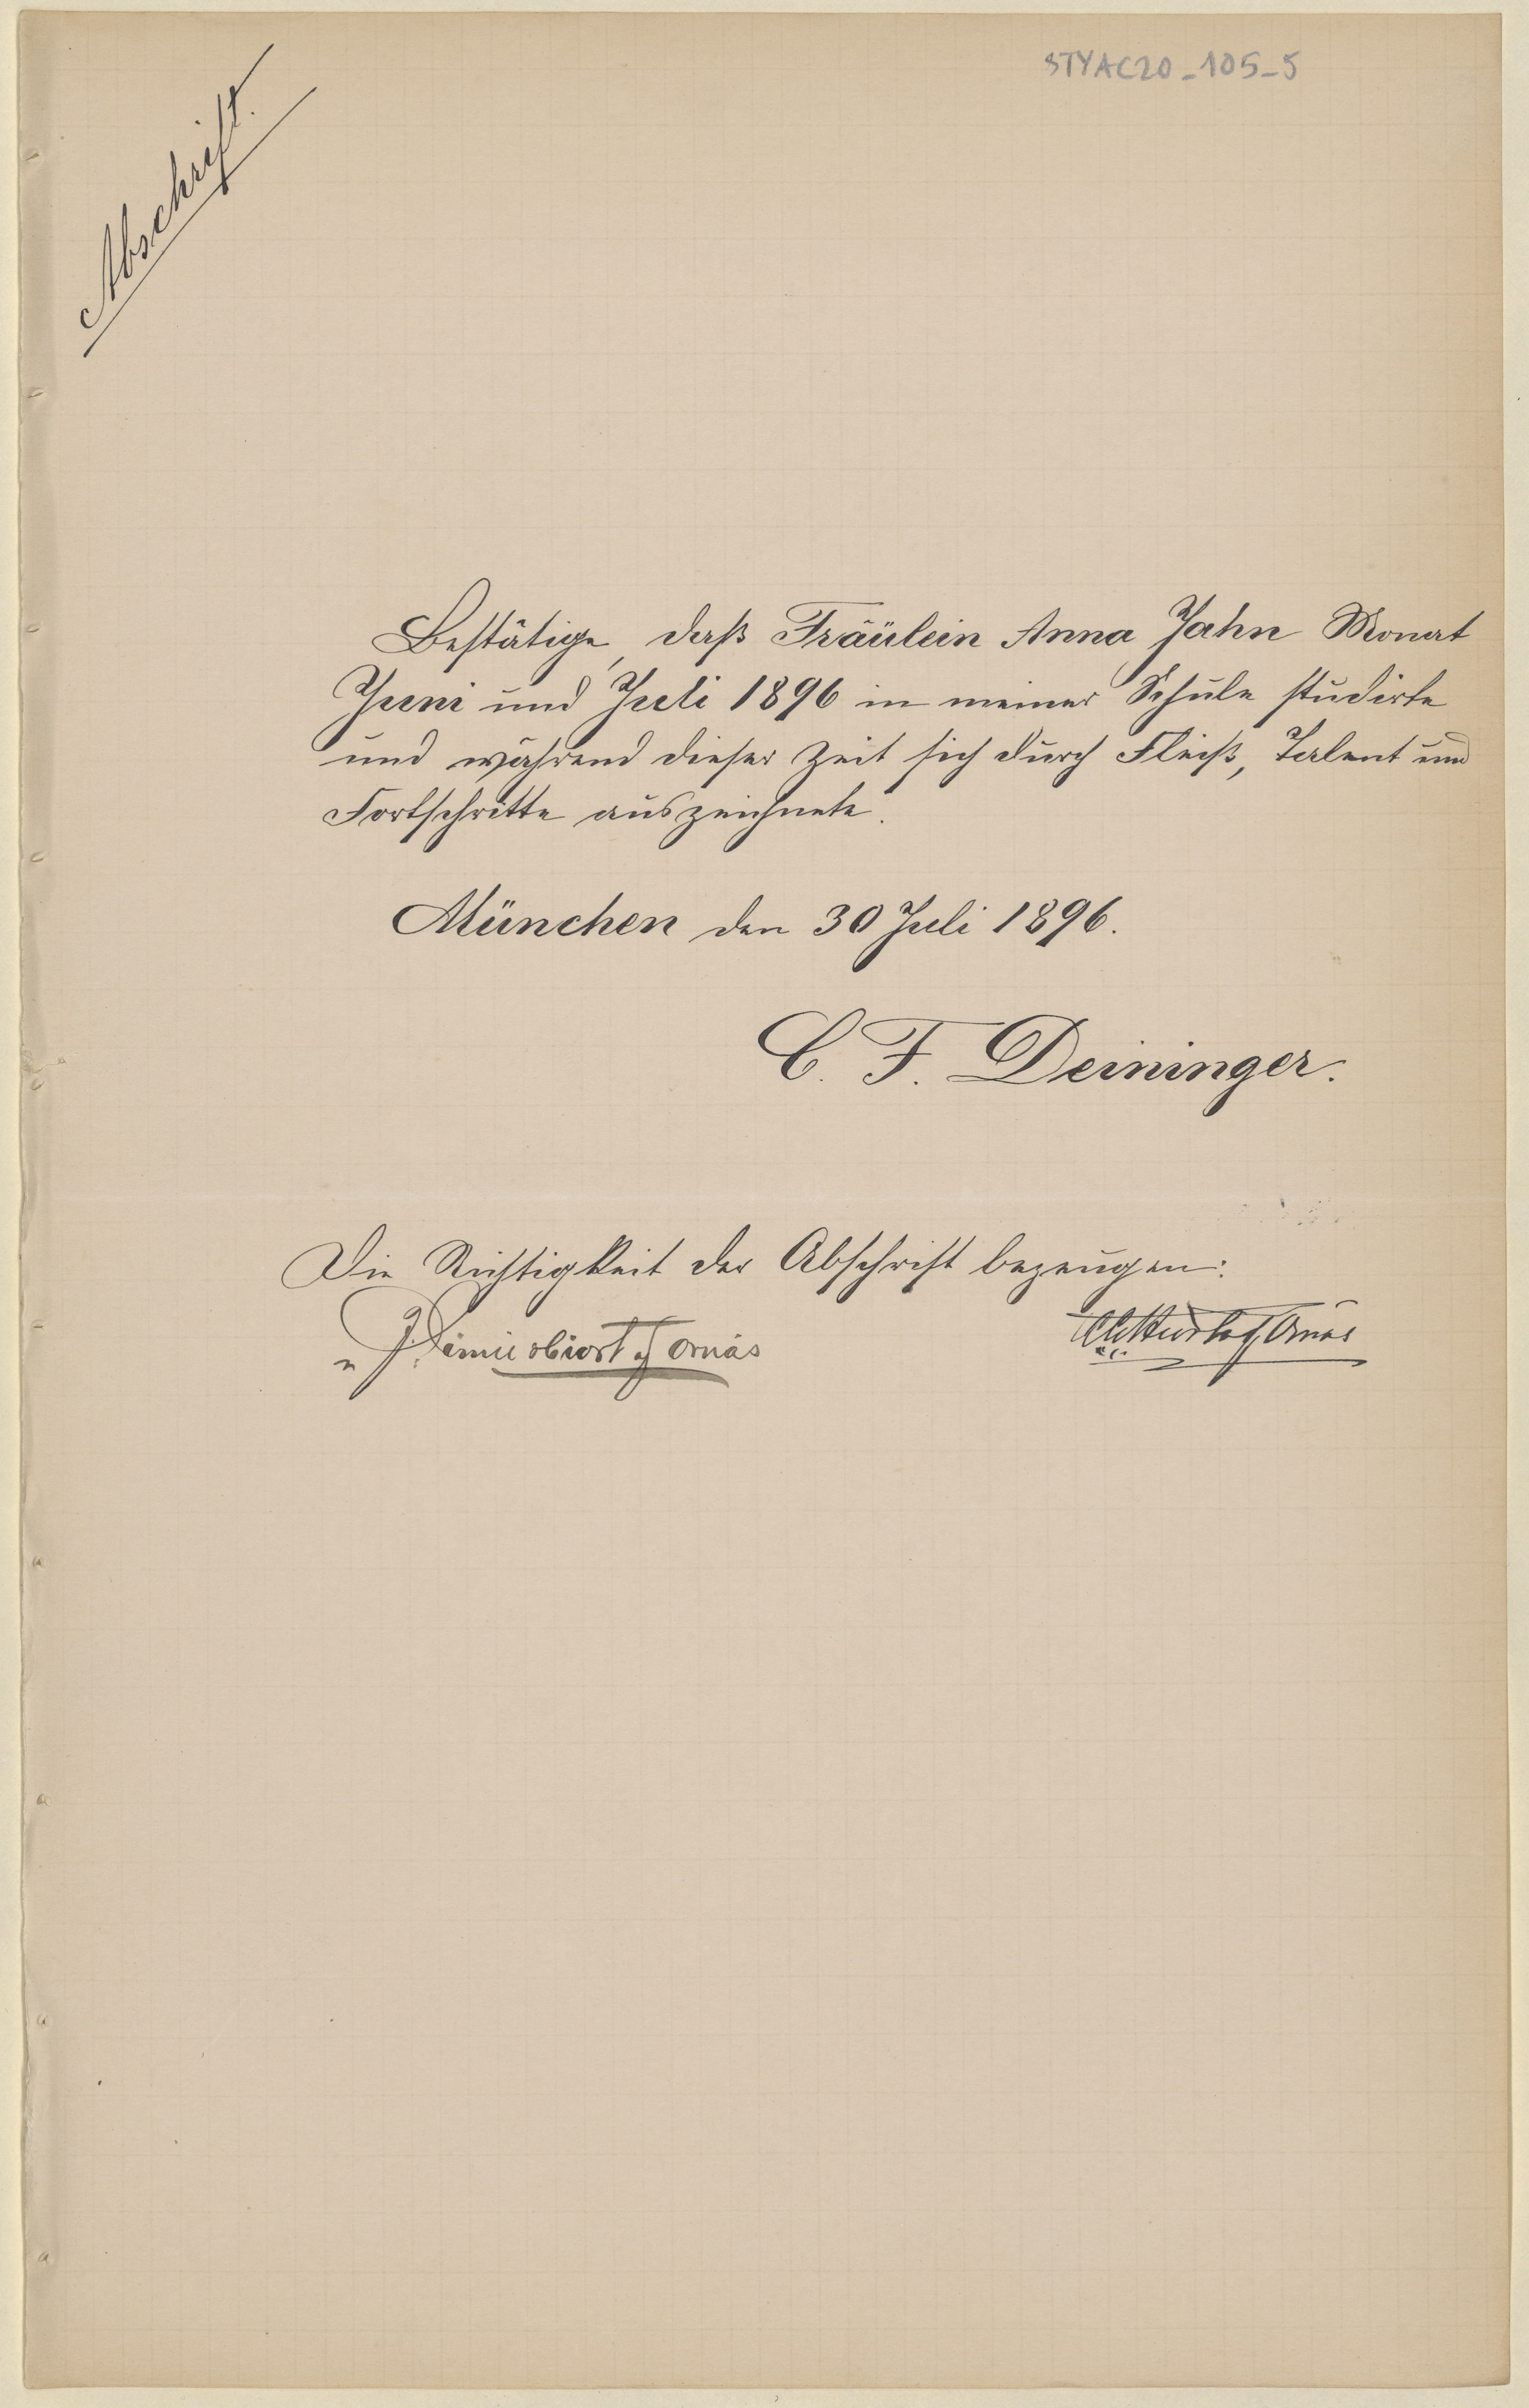 STYAC20_105_5
Abschrift.
Bestätige, daß Fräulein Anna Jahn Monat
Juni und Juli 1896 in meiner Schule studirte
und während dieser Zeit sich durch Fleiß, Talent und
Fortschritte auszeichnete.
München den 30 Juli 1896.
C. F. Deininger.
Die Richtigkeit der Abschrift bezeugen: